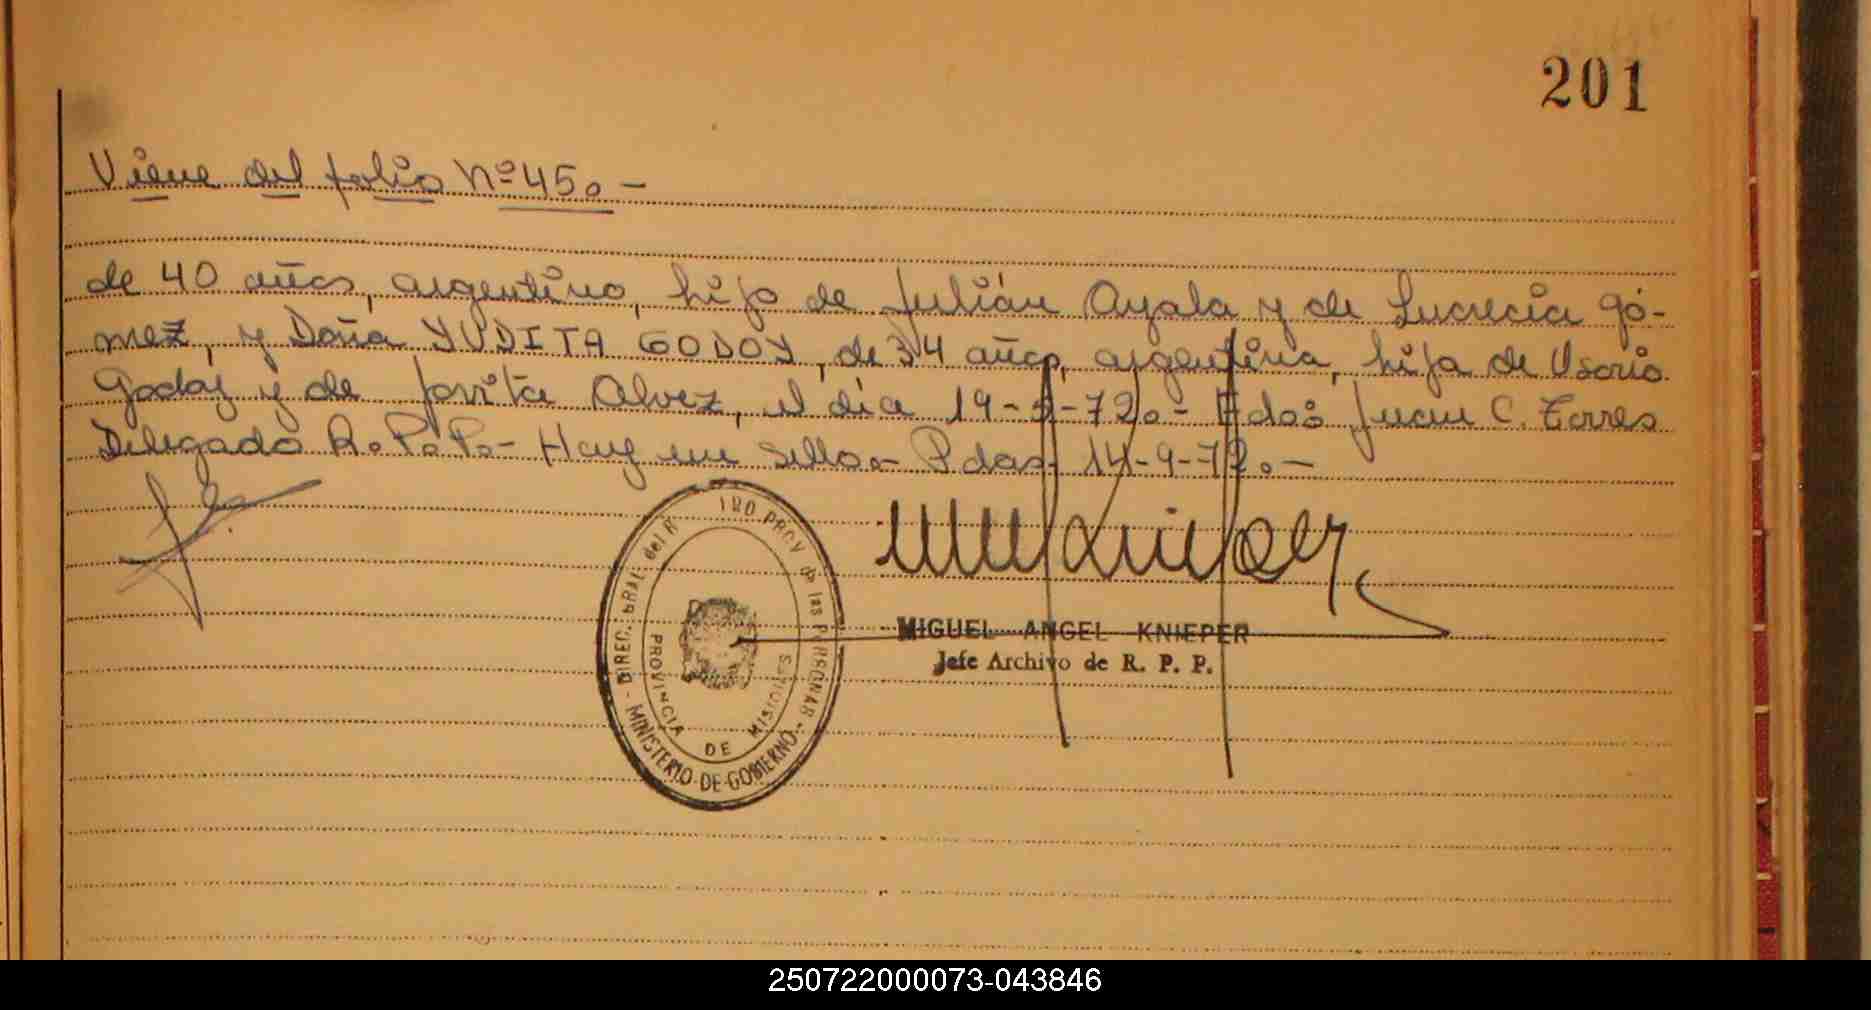 201
Viene del folio Nº 45.-
de 40 años, argentino, hijo de Julián Ayala y de Lucrecia Gó-
mez, y Doña YUDITA GODOY, de 34 años, argentina, hija de Usorio
Godoy y de Jovita Alvez, el día 19-5-72.- Fdo: Juan C. Torres
Delegado R.P.P.- Hay un sello.- Pdas. 14-9-72.-
MIGUEL ANGEL KNIEPER
Jefe Archivo de R. P. P.
DIREC. GRAL. del R PROV de las PERSONAS - MINISTERIO DE GOBIERNO -
PROVINCIA DE MISIONES
250722000073-043846